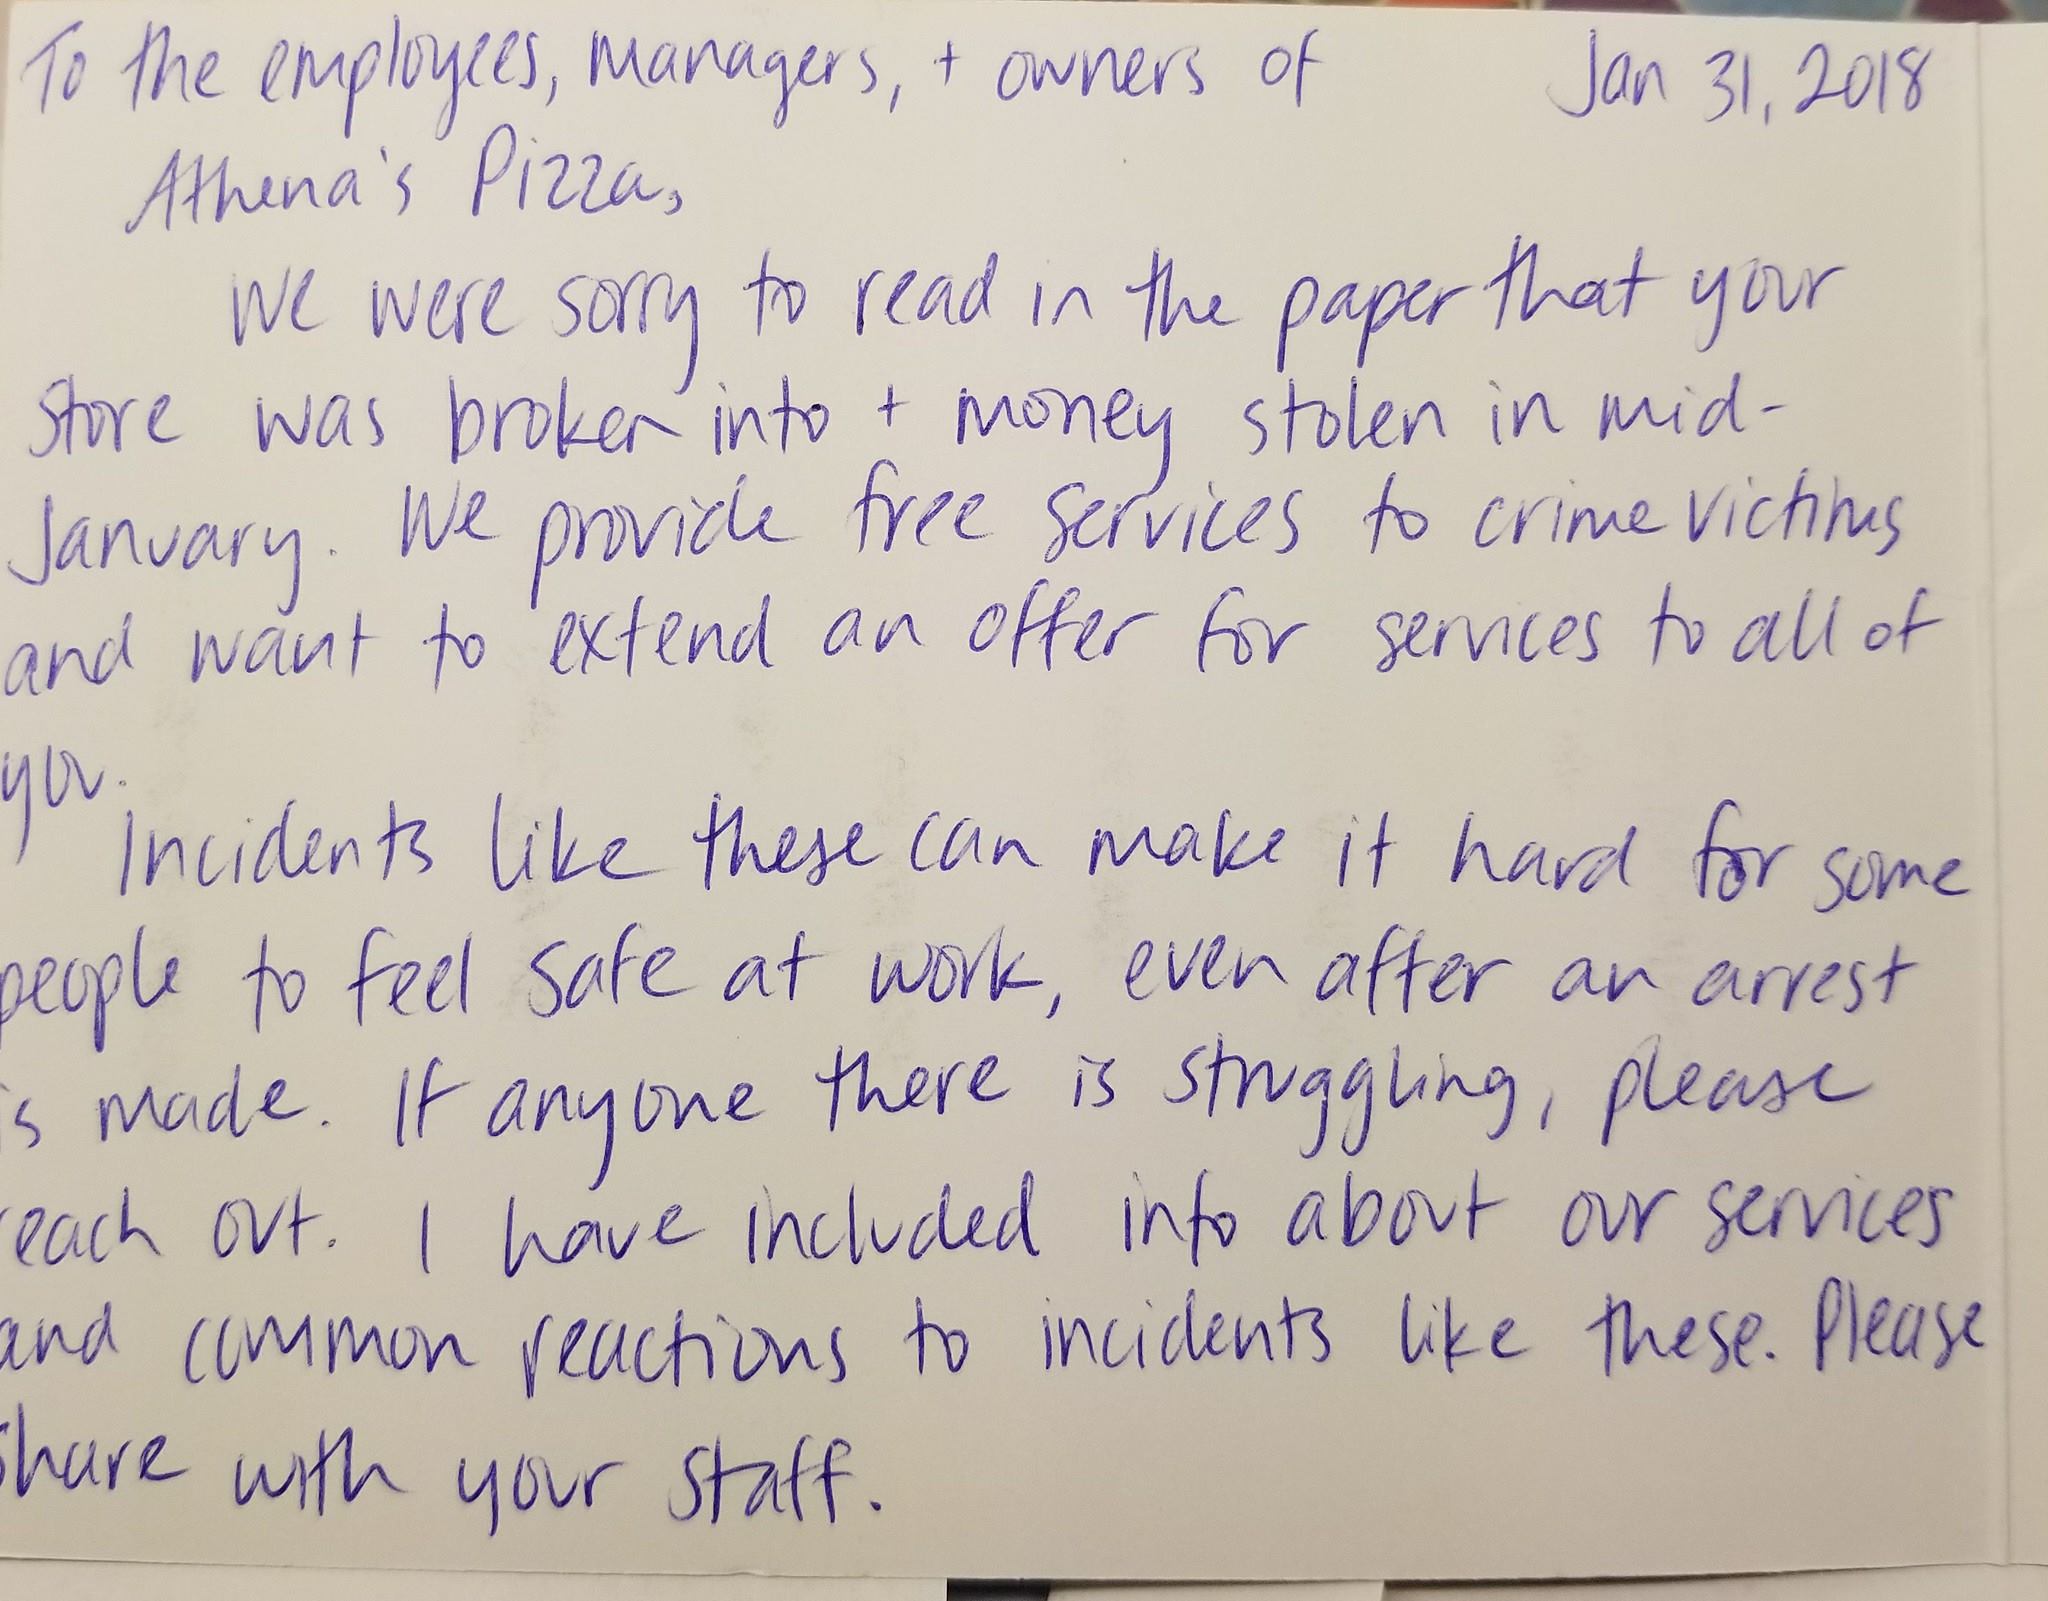 To the employees, managers, + owners of Jan 31, 2018
Athena's Pizza,
We were sorry to read in the paper that your
store was broken into + money stolen in mid-
January. We provide free services to crime victims
and want to extend an offer for services to all of
you.
Incidents like these can make it hard for some
people to feel safe at work, even after an arrest
is made. If anyone there is struggling, please
reach out. I have included info about our services
and common reactions to incidents like these. Please
share with your staff.